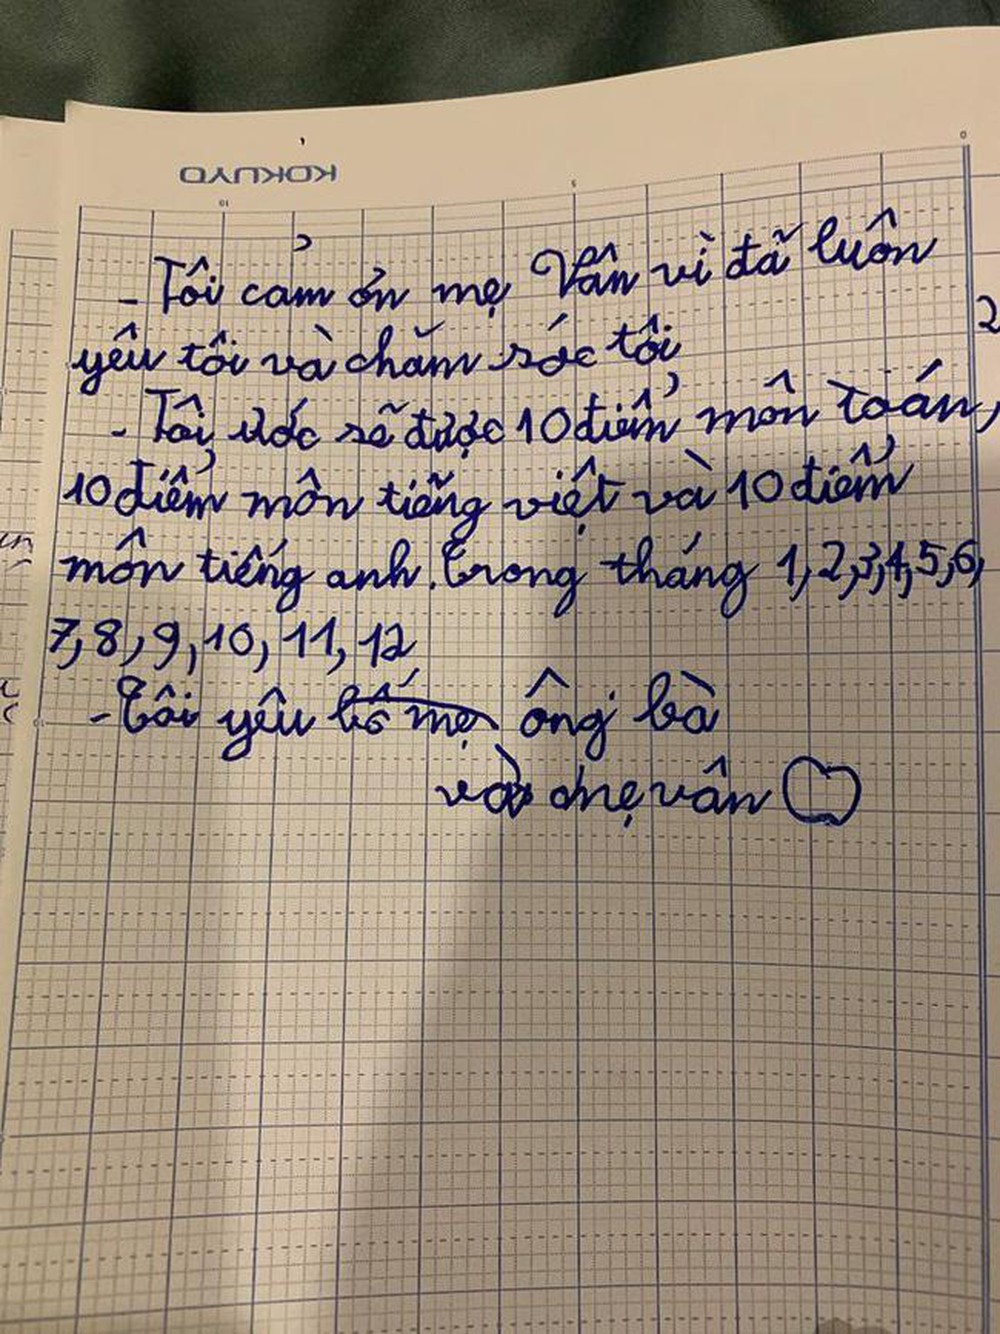 KOKUYO
10 5 0
- Tôi cảm ơn mẹ Vân vì đã luôn
yêu tôi và chăm sóc tôi
- Tôi ước sẽ được 10 điểm môn toán,
10 điểm môn tiếng việt và 10 điểm
môn tiếng anh. trong tháng 1,2,3,4,5,6,
7,8,9,10,11,12
- Tôi yêu bố mẹ ông bà
và mẹ vân
2